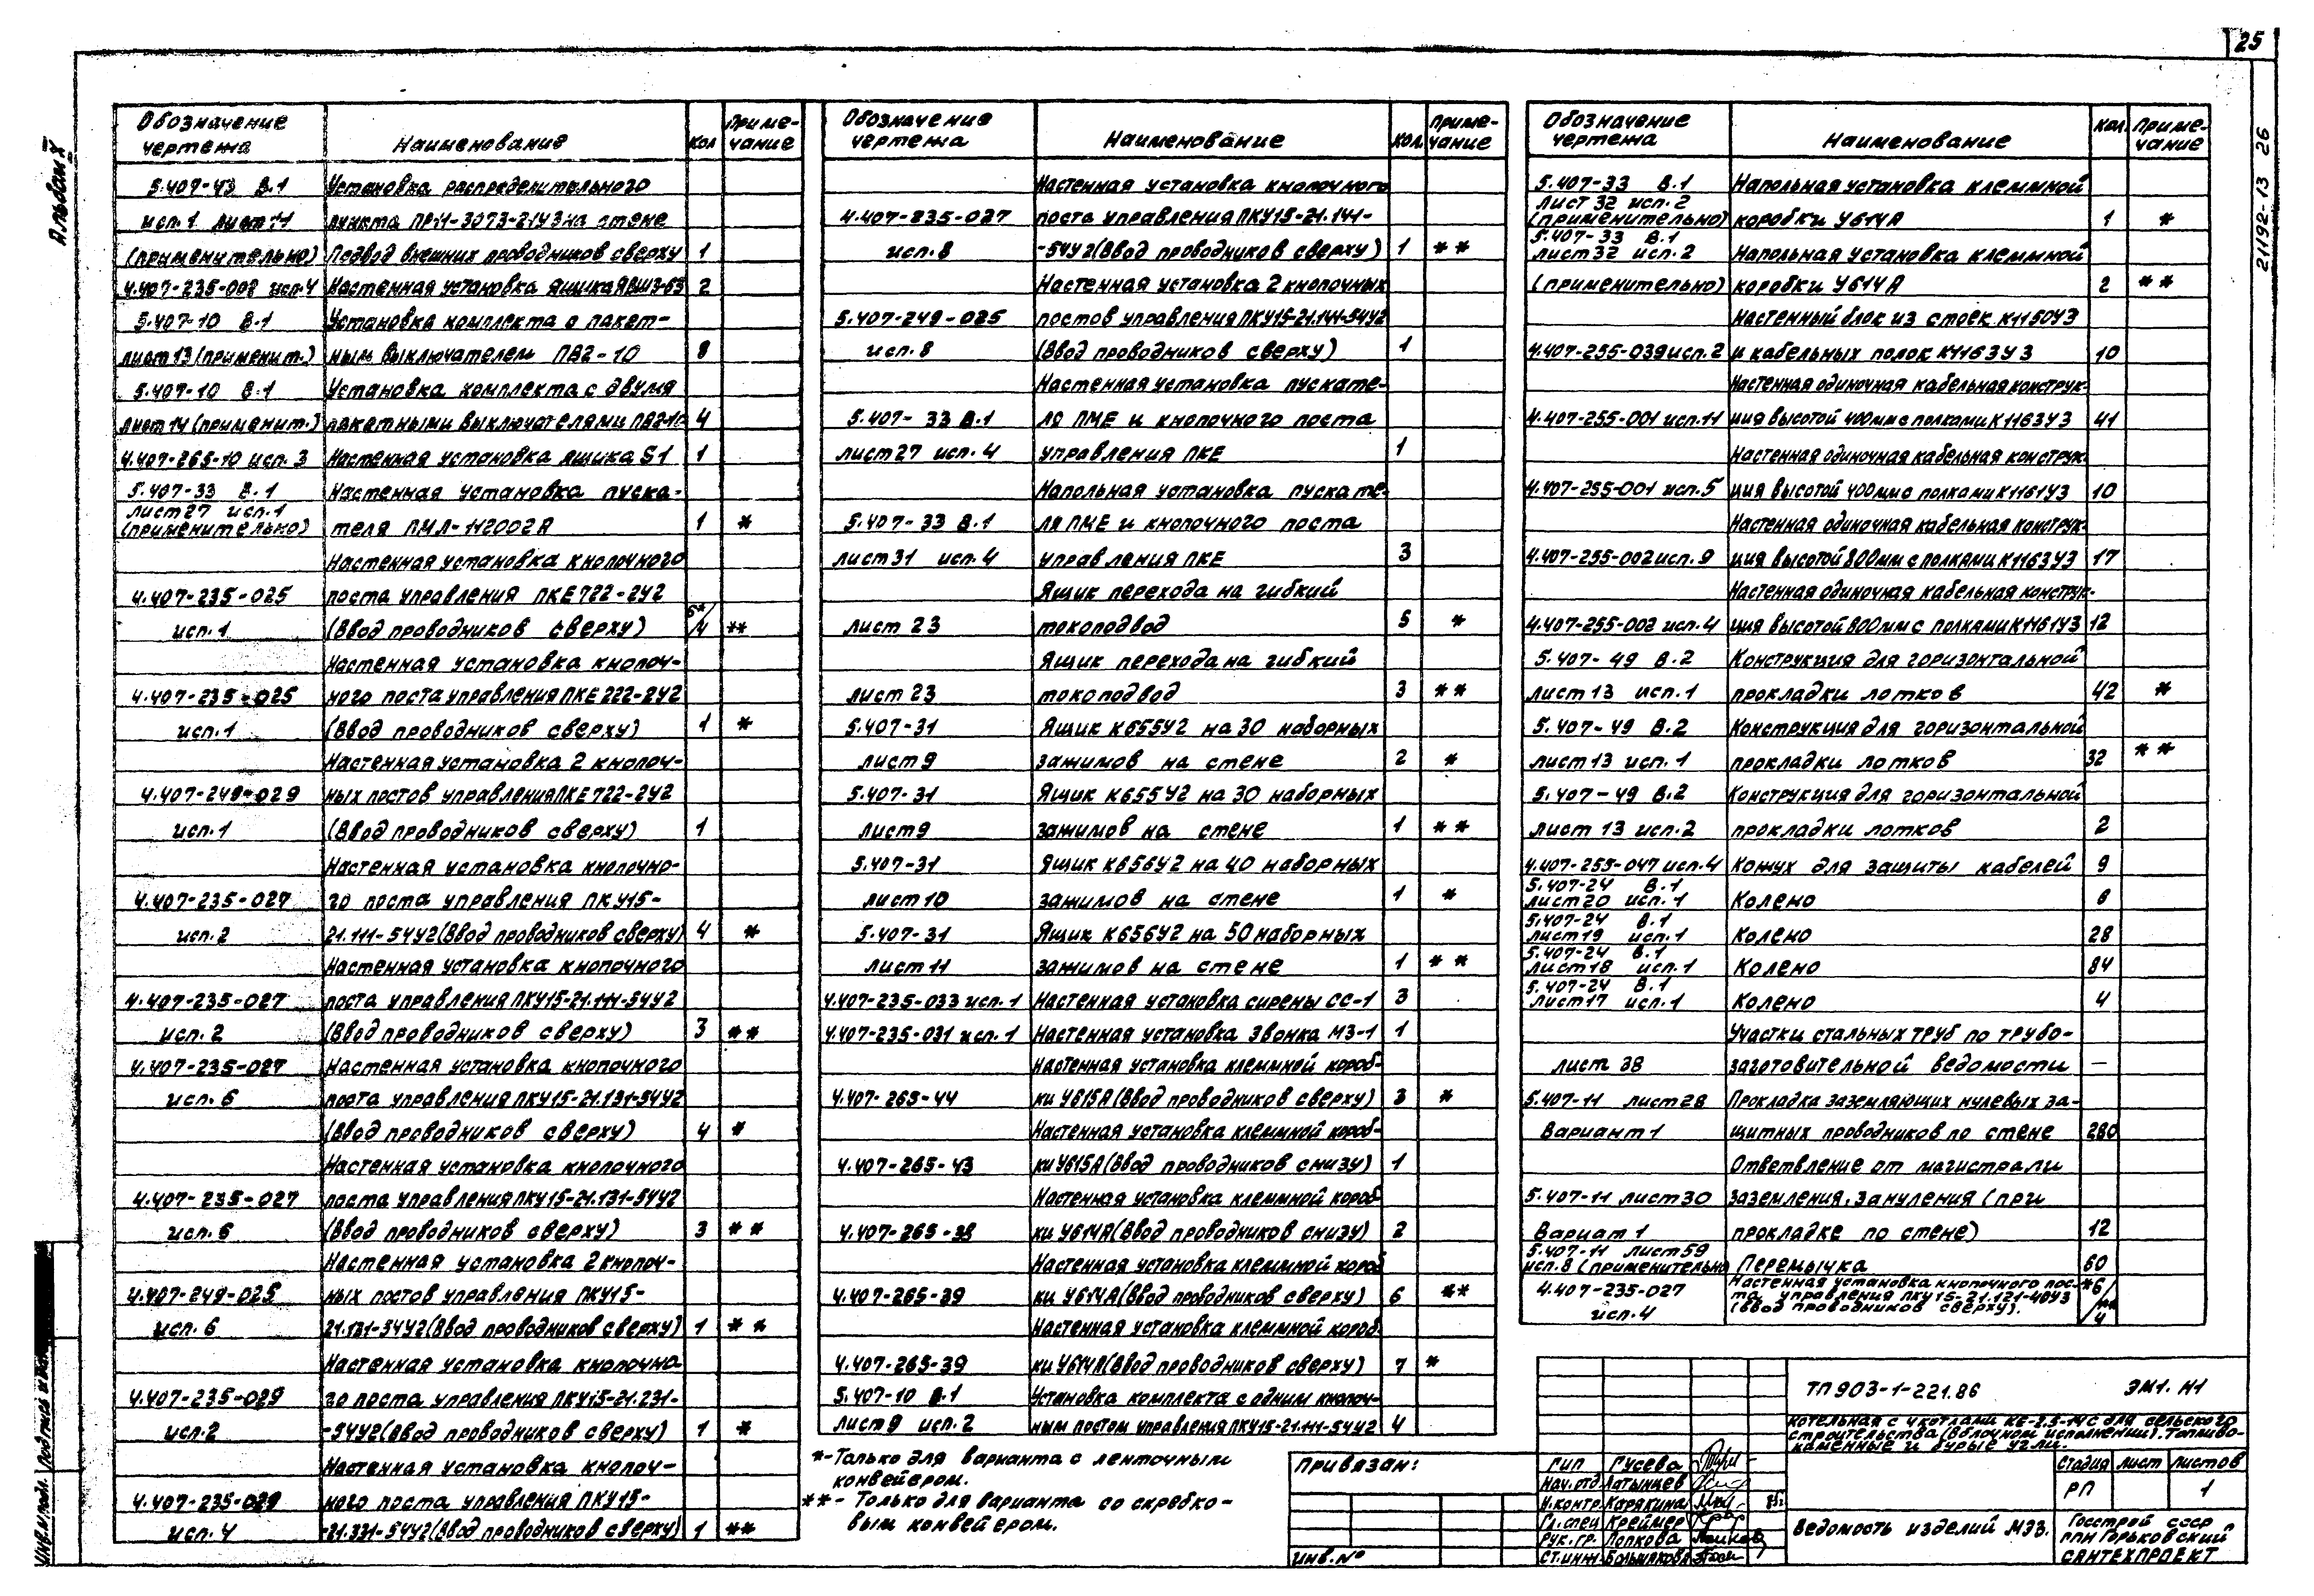 25
Альбом X
21192-13 26
Обозначение чертежа Наименование Кол Примечание
5.407-43 В.1 Установка распределительного
исп.1 лист 11 пункта ПР11-3073-21У3 на стене
(применительно) Подвод внешних проводников сверху 1
4.407-235-002 исп.4 Настенная установка ящика ЯВШ3-63 2
5.407-10 В.1 Установка комплекта с пакет-
лист 13 (применит.) ным выключателем ПВ2-10 8
5.407-10 В.1 Установка комплекта с двумя
лист 14 (применит.) пакетными выключателями ПВ2-10 4
4.407-265-10 исп.3 Настенная установка ящика S1 1
5.407-33 В.1 Настенная установка пуска-
лист 27 исп.1
(применительно) теля ПМЛ-112002А 1 *
Настенная установка кнопочного
4.407-235-025 поста управления ПКЕ722-2У2
исп.1 (Ввод проводников сверху) 6*/4 **
Настенная установка кнопоч-
4.407-235-025 ного поста управления ПКЕ 222-2У2
исп.1 (Ввод проводников сверху) 1 *
Настенная установка 2 кнопоч-
4.407-249-029 ных постов управления ПКЕ722-2У2
исп.1 (Ввод проводников сверху) 1
Настенная установка кнопочно-
4.407-235-027 го поста управления ПКУ15-
исп.2 21.111-54У2 (Ввод проводников сверху) 4 *
Настенная установка кнопочного
4.407-235-027 поста управления ПКУ15-21.111-54У2
исп.2 (Ввод проводников сверху) 3 **
4.407-235-027 Настенная установка кнопочного
исп.6 поста управления ПКУ15-21.131-54У2
(Ввод проводников сверху) 4 *
Настенная установка кнопочного
4.407-235-027 поста управления ПКУ15-21.131-54У2
исп.6 (Ввод проводников сверху) 3 **
Настенная установка 2 кнопоч-
4.407-249-025 ных постов управления ПКУ15-
исп.6 21.131-54У2 (Ввод проводников сверху) 1 **
Настенная установка кнопочно
4.407-235-029 го поста управления ПКУ15-21.231-
исп.2 -54У2 (Ввод проводников сверху) 1 *
Настенная установка кнопоч-
4.407-235-029 ного поста управления ПКУ15-
исп.4 -21.331-54У2 (Ввод проводников сверху) 1 **
Обозначение чертежа Наименование Кол. Примечание
Настенная установка кнопочного
4.407-235-027 поста управления ПКУ15-21.141-
исп.8 -54У2 (Ввод проводников сверху) 1 **
Настенная установка 2 кнопочных
5.407-249-025 постов управления ПКУ15-21.141-54У2
исп.8 (Ввод проводников сверху) 1
Настенная установка пускате-
5.407-33 В.1 ля ПМЕ и кнопочного поста
лист 27 исп.4 управления ПКЕ 1
Напольная установка пускате-
5.407-33 В.1 ля ПМЕ и кнопочного поста
лист 31 исп.4 управления ПКЕ 3
Ящик перехода на гибкий
лист 23 токоподвод 5 *
Ящик перехода на гибкий
лист 23 токоподвод 3 **
5.407-31 Ящик К655У2 на 30 наборных
лист 9 зажимов на стене 2 *
5.407-31 Ящик К655У2 на 30 наборных
лист 9 зажимов на стене 1 **
5.407-31 Ящик К656У2 на 40 наборных
лист 10 зажимов на стене 1 *
5.407-31 Ящик К656У2 на 50 наборных
лист 11 зажимов на стене 1 **
4.407-235-033 исп.1 Настенная установка сирены СС-1 3
4.407-235-031 исп.1 Настенная установка звонка МЗ-1 1
Настенная установка клеммной короб-
4.407-265-44 ки У615А (Ввод проводников сверху) 3 *
Настенная установка клеммной короб-
4.407-265-43 ки У615А (Ввод проводников снизу) 1
Настенная установка клеммной короб-
4.407-265-38 ки У614А (Ввод проводников снизу) 2
Настенная установка клеммной короб
4.407-265-39 ки У614А (Ввод проводников сверху) 6 **
Настенная установка клеммной короб-
4.407-265-39 ки У614А (Ввод проводников сверху) 7 *
5.407-10 В.1 Установка комплекта с одним кнопоч-
лист 9 исп.2 ным постом управления ПКУ15-21.111-54У2 4
*-Только для варианта с ленточным
конвейером.
**- Только для варианта со скребко-
вым конвейером.
Обозначение чертежа Наименование Кол. Примечание
5.407-33 В.1 Напольная установка клеммной
лист 32 исп.2
(применительно) коробки У614А 1 *
5.407-33 В.1
лист 32 исп.2 Напольная установка клеммной
(применительно) коробки У614А 2 **
Настенный блок из стоек К1150У3
4.407-255-039 исп.2 и кабельных полок К1163У3 10
Настенная одиночная кабельная конструк-
4.407-255-001 исп.11 ция высотой 400мм с полками К1163У3 41
Настенная одиночная кабельная конструк-
4.407-255-001 исп.5 ция высотой 400мм с полками К1161У3 10
Настенная одиночная кабельная конструк-
4.407-255-002 исп.9 ция высотой 800мм с полками К1163У3 17
Настенная одиночная кабельная конструк-
4.407-255-002 исп.4 ция высотой 800мм с полками К1161У3 12
5.407-49 В.2 Конструкция для горизонтальной
лист 13 исп.1 прокладки лотков 42 *
5.407-49 В.2 Конструкция для горизонтальной
лист 13 исп.1 прокладки лотков 32 **
5.407-49 В.2 Конструкция для горизонтальной
лист 13 исп.2 прокладки лотков 2
4.407-255-047 исп.4 Кожух для защиты кабелей 9
5.407-24 В.1
лист 20 исп.1 Колено 6
5.407-24 В.1
лист 19 исп.1 Колено 28
5.407-24 В.1
лист 18 исп.1 Колено 84
5.407-24 В.1
лист 17 исп.1 Колено 4
Участки стальных труб по трубо-
лист 38 заготовительной ведомости —
5.407-11 лист 28 Прокладка заземляющих нулевых за-
Вариант 1 щитных проводников по стене 280
Ответвление от магистрали
5.407-11 лист 30 заземления, зануления (при
Вариант 1 прокладке по стене) 12
5.407-11 лист 59
исп.8 (применительно Перемычка 60
4.407-235-027 Настенная установка кнопочного пос-
та управления ПКУ15-21.121-40У3 *6/**4
исп.4 (Ввод проводников сверху).
ТП 903-1-221.86 ЭМ1. Н1
Котельная с 4 котлами КЕ-2,5-14С для сельского
строительства (в блочном исполнении). Топливо-
каменные и бурые угли.
Привязан:
Инв.№
ГИП Гусева
Нач.отд. Латынцев
Н.контр. Карякина
Гл.спец Креймер
Рук.гр. Попкова
Ст.инж. Большакова
Стадия Лист Листов
РП 1
Ведомость изделий МЭЗ.
Госстрой СССР
ГПИ Горьковский
САНТЕХПРОЕКТ
Инв.№подл. Подпись и